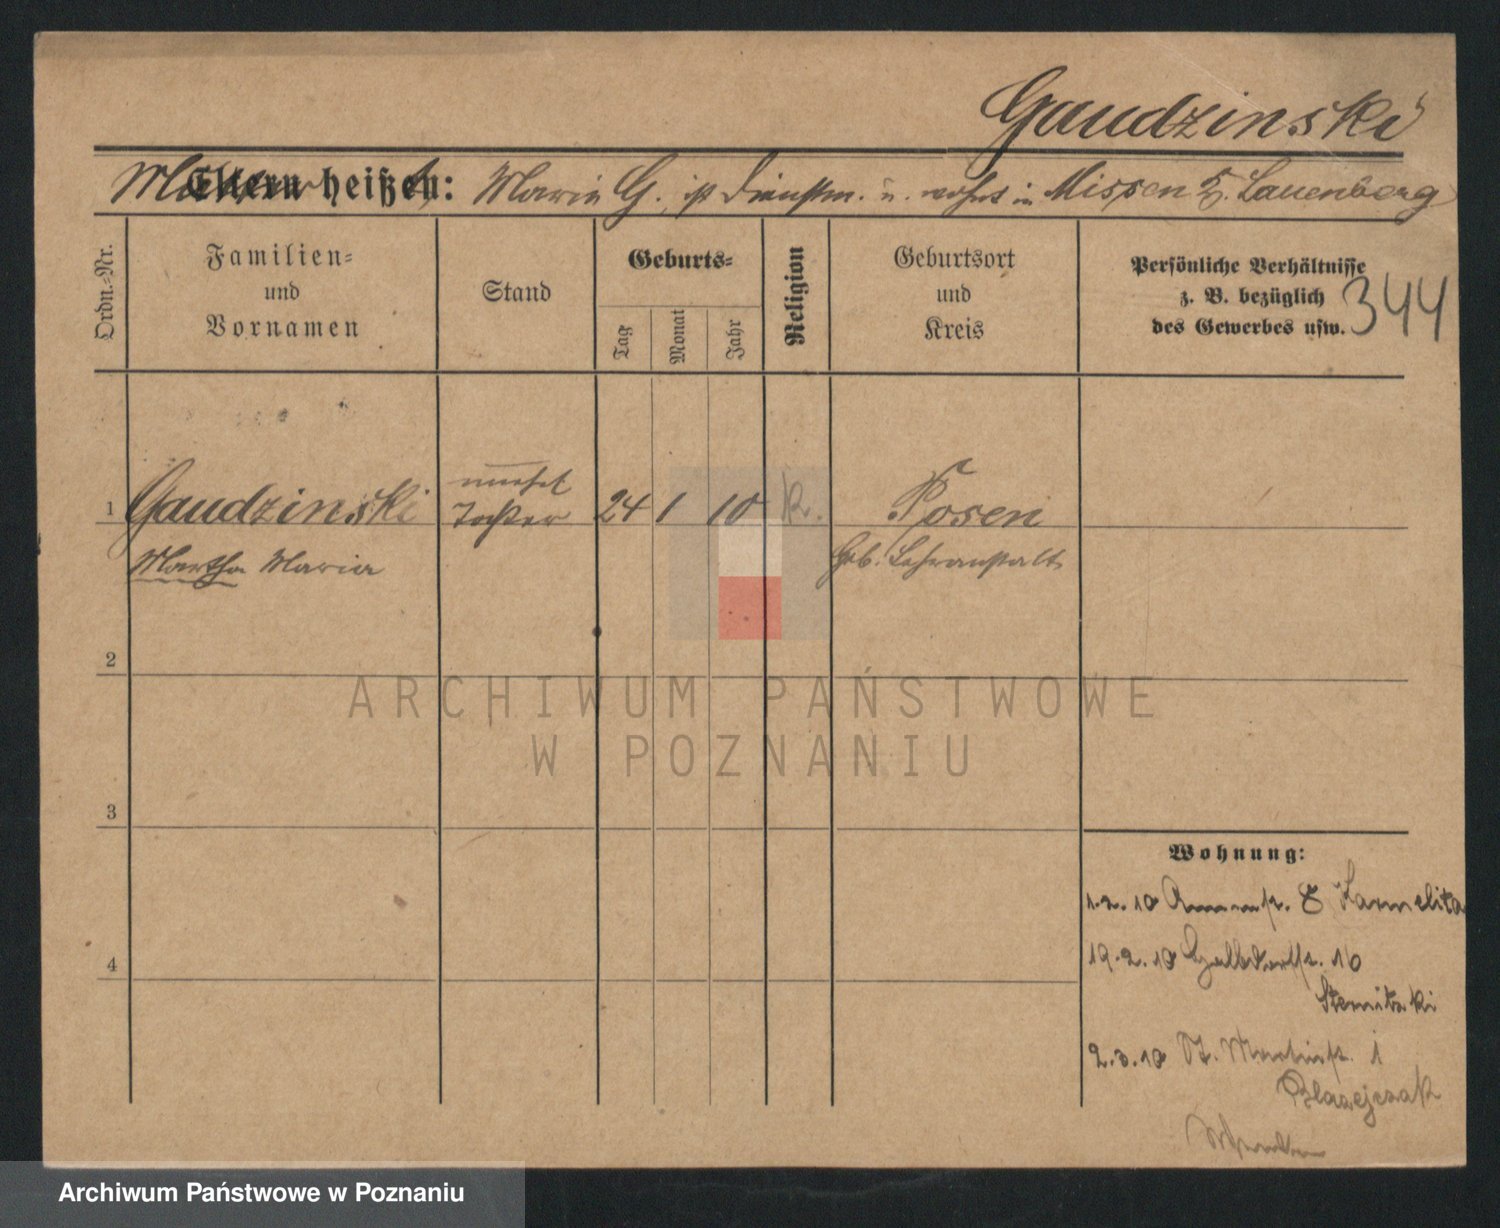 Gaudzinski
Eltern heißen: Maria G., ist Dienstm. u. wohnt in Missen Kr. Lauenberg
Ordn.-Nr.
Familien=
und
Vornamen
Stand
Geburts=
Tag
Monat
Jahr
Religion
Geburtsort
und
Kreis
Persönliche Verhältnisse
z. B. bezüglich
des Gewerbes usw.
344
unehel
1 Gaudzinski Tochter 24 1 10 k. Posen
Martha Maria Geb. Lehranstalt
2
ARCHIWUM PAŃSTWOWE
W POZNANIU
3
Wohnung:
1.2.10 8 Karmelita
4
19.2.10 16
2.3.10 St. Martinstr. 1
Blazejczak
Archiwum Państwowe w Poznaniu